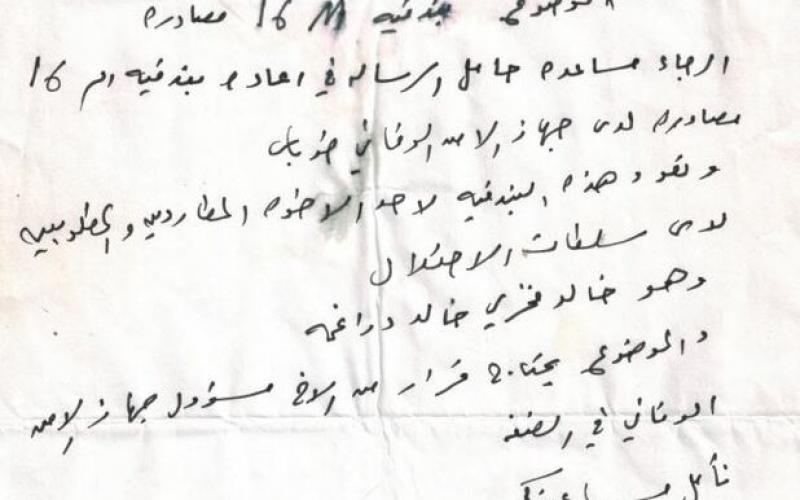 الموضوع بندقيه M 16 مصادره
الرجاء مساعده حامل الرساله في اعاده بندقيه ام 16
مصادره لدى جهاز الامن الوقائي طوباس
وتعود هذه البندقيه لاحد الاخوه المطاردين والمطلوبين
لدى سلطات الاحتلال
وهو خالد فخري خالد دراغمه
والموضوع يحتاج قرار من الاخ مسؤول جهاز الامن
الوقائي في الضفه
نأمل مساعدتكم